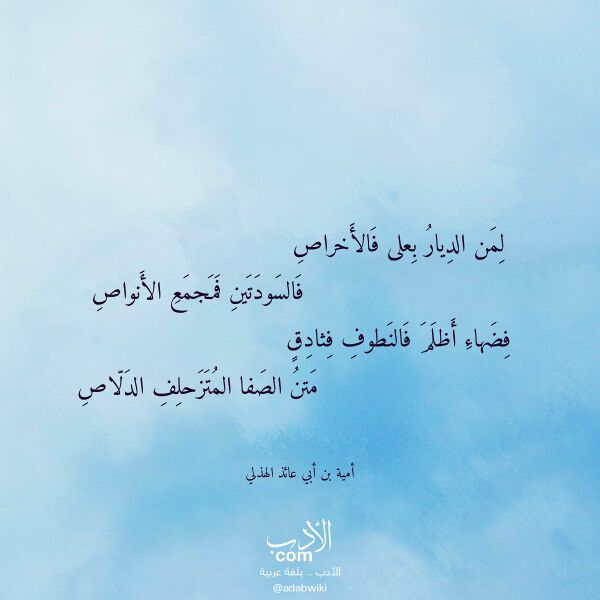 لِمَن الدِيارُ بِعلى فَالأَخراصِ
فَالسَودَتَينِ فَمَجمَعِ الأَنواصِ
فِضَهاءِ أَظلَمَ فَالنَطوفِ فِثادِقٍ
مَتنُ الصَفا المُتَزَحلِفِ الدَلّاصِ
أمية بن أبي عائذ الهذلي
الأدب
com
الأدب .. بلغة عربية
@adabwiki